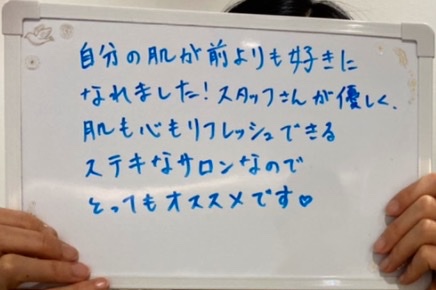 自分の肌が前よりも好きに
なれました!スタッフさんが優しく、
肌も心もリフレッシュできる
ステキなサロンなので
とってもオススメです♡